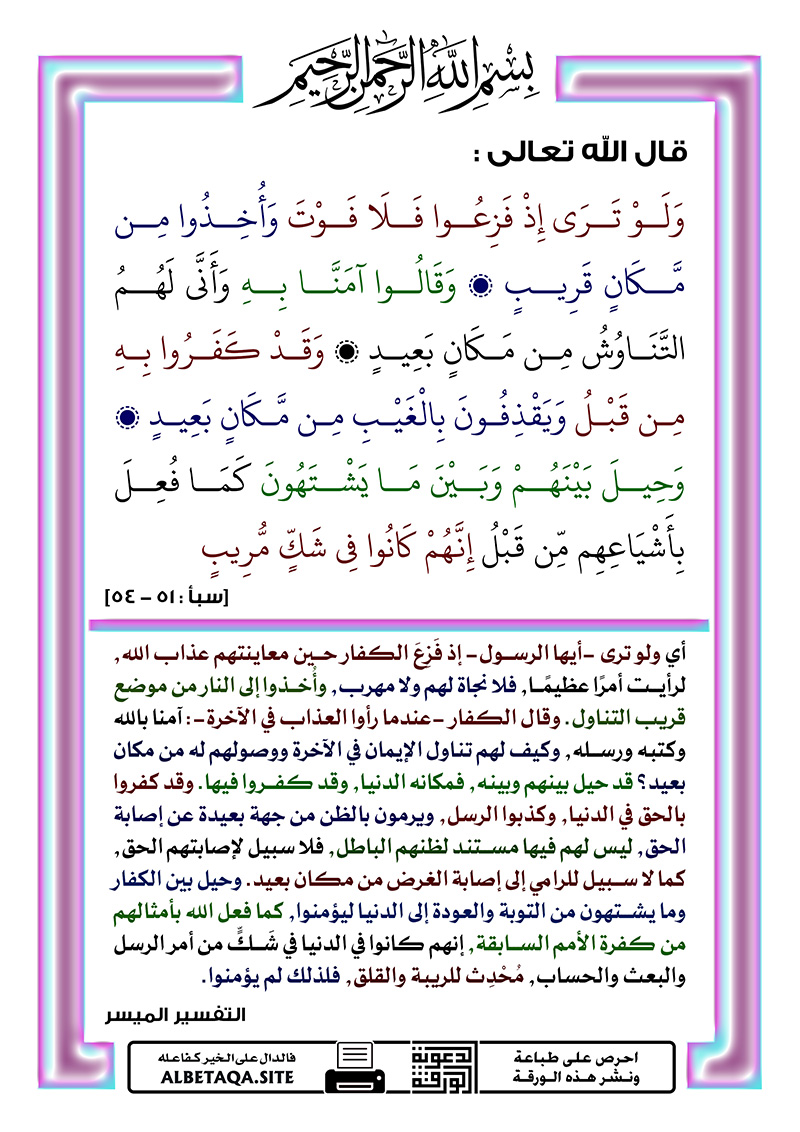 بِسْمِ اللَّهِ الرَّحْمَنِ الرَّحِيمِ
قال الله تعالى :
وَلَـــوْ تَـــرَى إِذْ فَزِعُـــوا فَـــلَا فَـــوْتَ وَأُخِـــذُوا مِـــن
مَّـــكَانٍ قَرِيـــبٍ ۞ وَقَالُـــوا آمَنَّـــا بِـــهِ وَأَنَّى لَهُـــمُ
التَّنَـــاوُشُ مِـــن مَـــكَانٍ بَعِيـــدٍ ۞ وَقَـــدْ كَفَـــرُوا بِـــهِ
مِـــن قَبْـــلُ وَيَقْذِفُـــونَ بِالْغَيْـــبِ مِـــن مَّـــكَانٍ بَعِيـــدٍ ۞
وَحِيـــلَ بَيْنَهُـــمْ وَبَيْـــنَ مَـــا يَشْـــتَهُونَ كَمَـــا فُعِـــلَ
بِأَشْيَاعِهِم مِّن قَبْلُ إِنَّهُمْ كَانُوا فِي شَكٍّ مُّرِيبٍ
[سبأ : ٥١ - ٥٤]
أي ولو ترى -أيها الرسول- إذ فَزِعَ الكفار حين معاينتهم عذاب الله,
لرأيت أمرًا عظيمًا, فلا نجاة لهم ولا مهرب, وأُخذوا إلى النار من موضع
قريب التناول. وقال الكفار -عندما رأوا العذاب في الآخرة-: آمنا بالله
وكتبه ورسله, وكيف لهم تناول الإيمان في الآخرة ووصولهم له من مكان
بعيد؟ قد حيل بينهم وبينه, فمكانه الدنيا, وقد كفروا فيها. وقد كفروا
بالحق في الدنيا, وكذبوا الرسل, ويرمون بالظن من جهة بعيدة عن إصابة
الحق, ليس لهم فيها مستند لظنهم الباطل, فلا سبيل لإصابتهم الحق,
كما لا سبيل للرامي إلى إصابة الغرض من مكان بعيد. وحيل بين الكفار
وما يشتهون من التوبة والعودة إلى الدنيا ليؤمنوا, كما فعل الله بأمثالهم
من كفرة الأمم السابقة, إنهم كانوا في الدنيا في شَكٍّ من أمر الرسل
والبعث والحساب, مُحْدِث للريبة والقلق, فلذلك لم يؤمنوا.
التفسير الميسر
احرص على طباعة
ونشر هذه الورقة
الورقة الدعوية
فالدال على الخير كفاعله
ALBETAQA.SITE